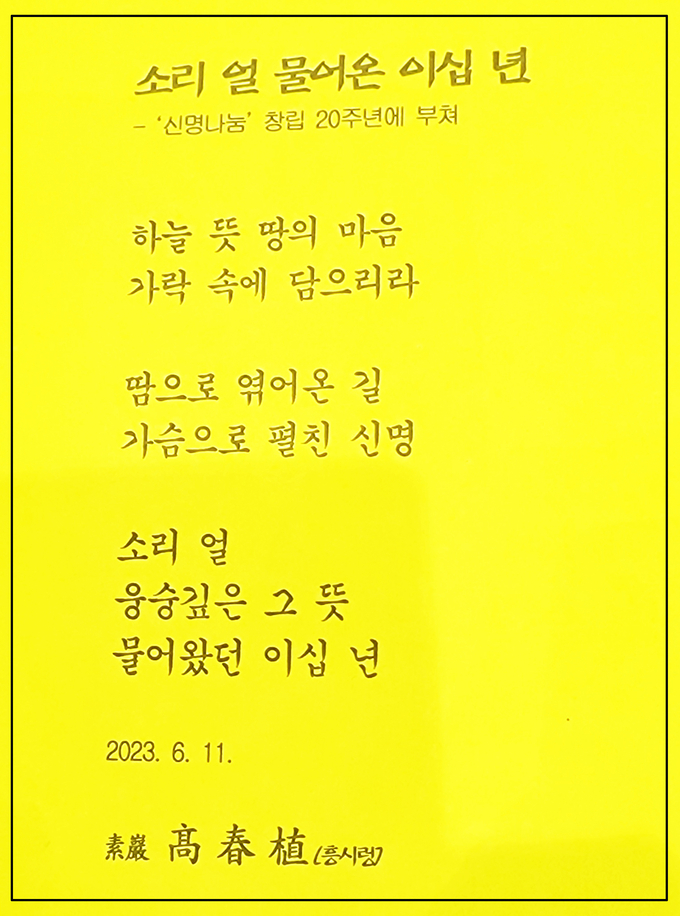 소리 얼 물어온 이십 년
- '신명나눔' 창립 20주년에 부쳐
하늘 뜻 땅의 마음
가락 속에 담으리라
땀으로 엮어온 길
가슴으로 펼친 신명
소리 얼
웅숭깊은 그 뜻
물어왔던 이십 년
2023. 6. 11.
素巖 高春植(흥시렁)